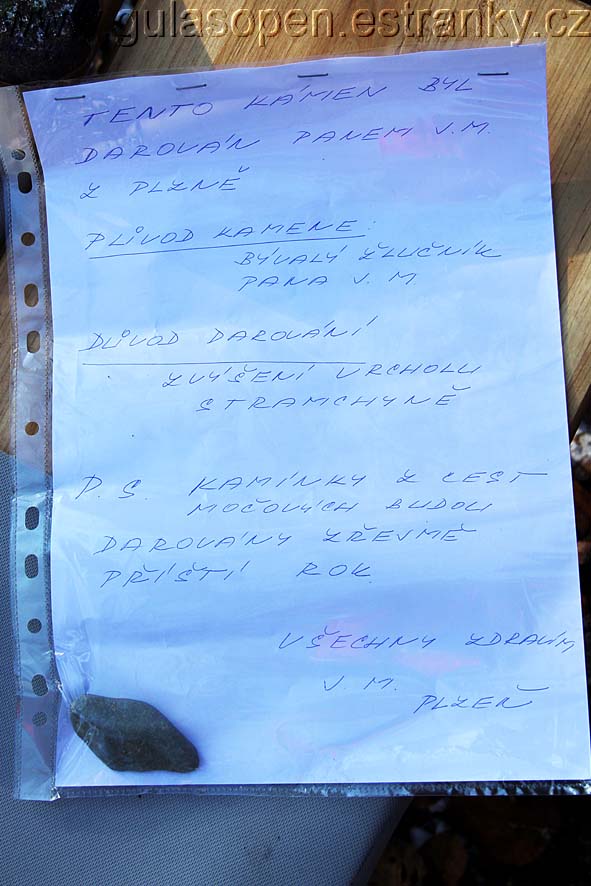 www.gulasopen.estranky.cz
TENTO KÁMEN BYL
DAROVÁN PANEM V.M.
Z PLZNĚ
PŮVOD KAMENE:
BÝVALÝ ŽLUČNÍK
PANA V.M
DŮVOD DAROVÁNÍ
ZVÝŠENÍ VRCHOLU
STRAMCHYNĚ
P.S. KAMÍNKY Z CEST
MOČOVÝCH BUDOU
DAROVÁNY ZŘEJMĚ
PŘÍŠTÍ ROK
VŠECHNY ZDRAVÍM
V.M.
PLZEŇ